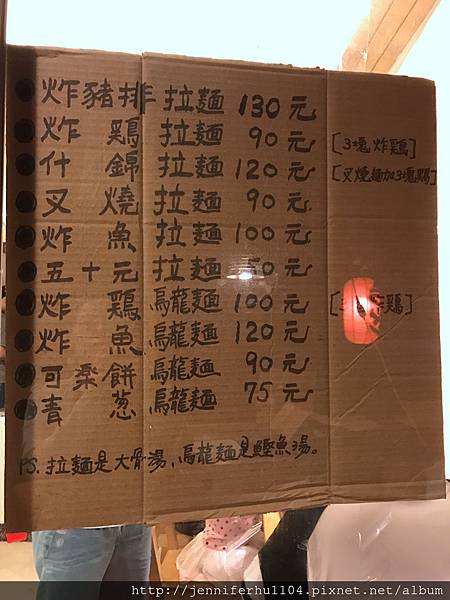 炸豬排拉麵 130元
炸鷄拉麵 90元 [3塊炸鷄]
什錦拉麵 120元 [叉燒麵加3塊鷄]
叉燒拉麵 90元
炸魚拉麵 100元
五十元拉麵 50元
炸鷄烏龍麵 100元 [ 炸鷄]
炸魚烏龍麵 120元
可樂餅烏龍麵 90元
青葱烏龍麵 75元
PS. 拉麵是大骨湯,烏龍麵是鰹魚湯。
http://jenniferhu1104.pixnet.net/album